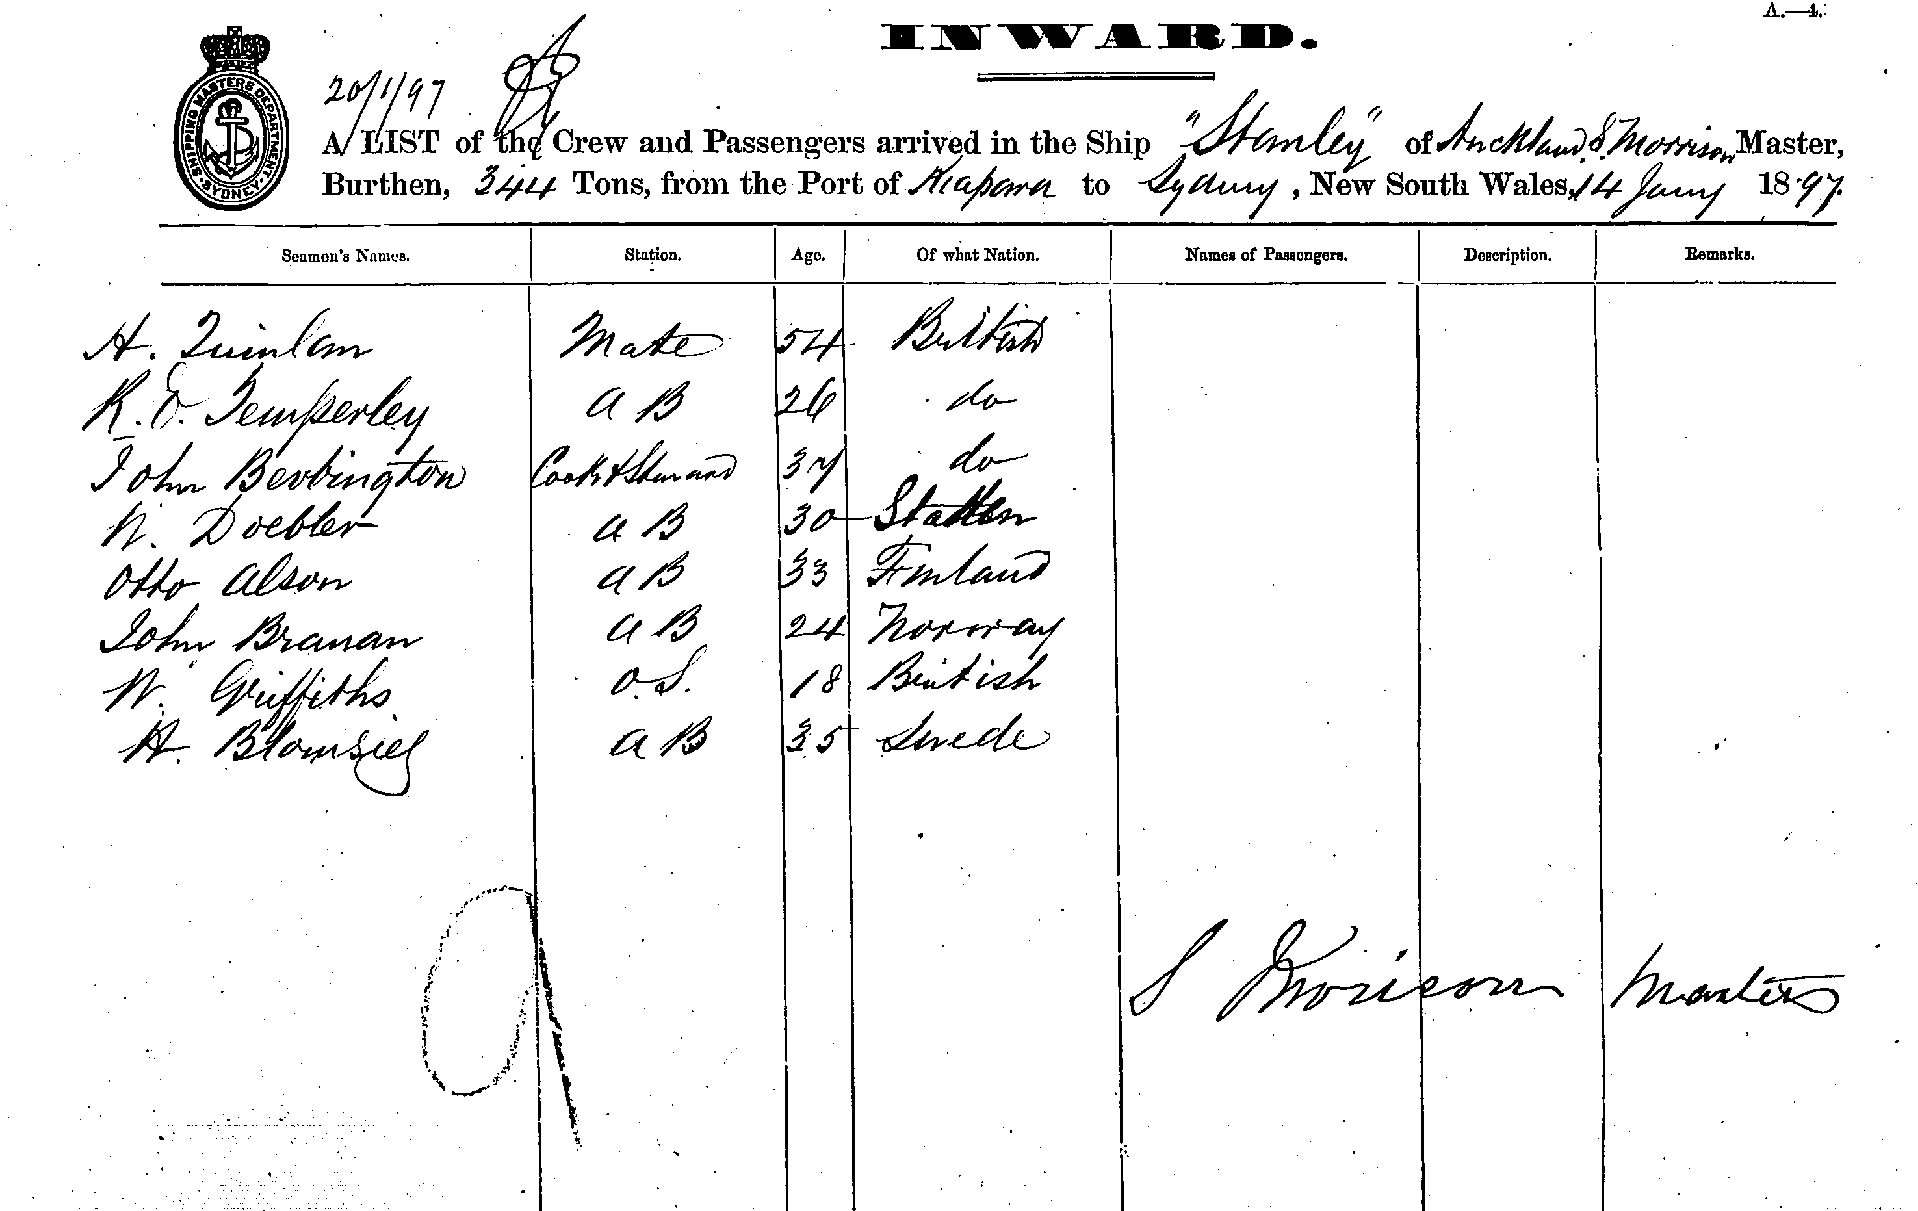 A.—4.
INWARD.
SHIPPING MASTERS DEPARTMENT. SYDNEY.
20/1/97
A LIST of the Crew and Passengers arrived in the Ship "Stanley" of Auckland, S. Morrison Master,
Burthen, 344 Tons, from the Port of Kiapara to Sydney, New South Wales, 14 Jany 1897.
Seamen's Names. Station. Age. Of what Nation. Names of Passengers. Description. Remarks.
A. Quinlan Mate 54 British
R. O. Temperley A B 26 do
John Bevbington Cook & Steward 37 do
W. Doebler A B 30 Statten
Otto Alson A B 33 Finland
John Branan A B 24 Norway
W. Griffiths O.S. 18 British
A B 35 Swede
S Morison Master